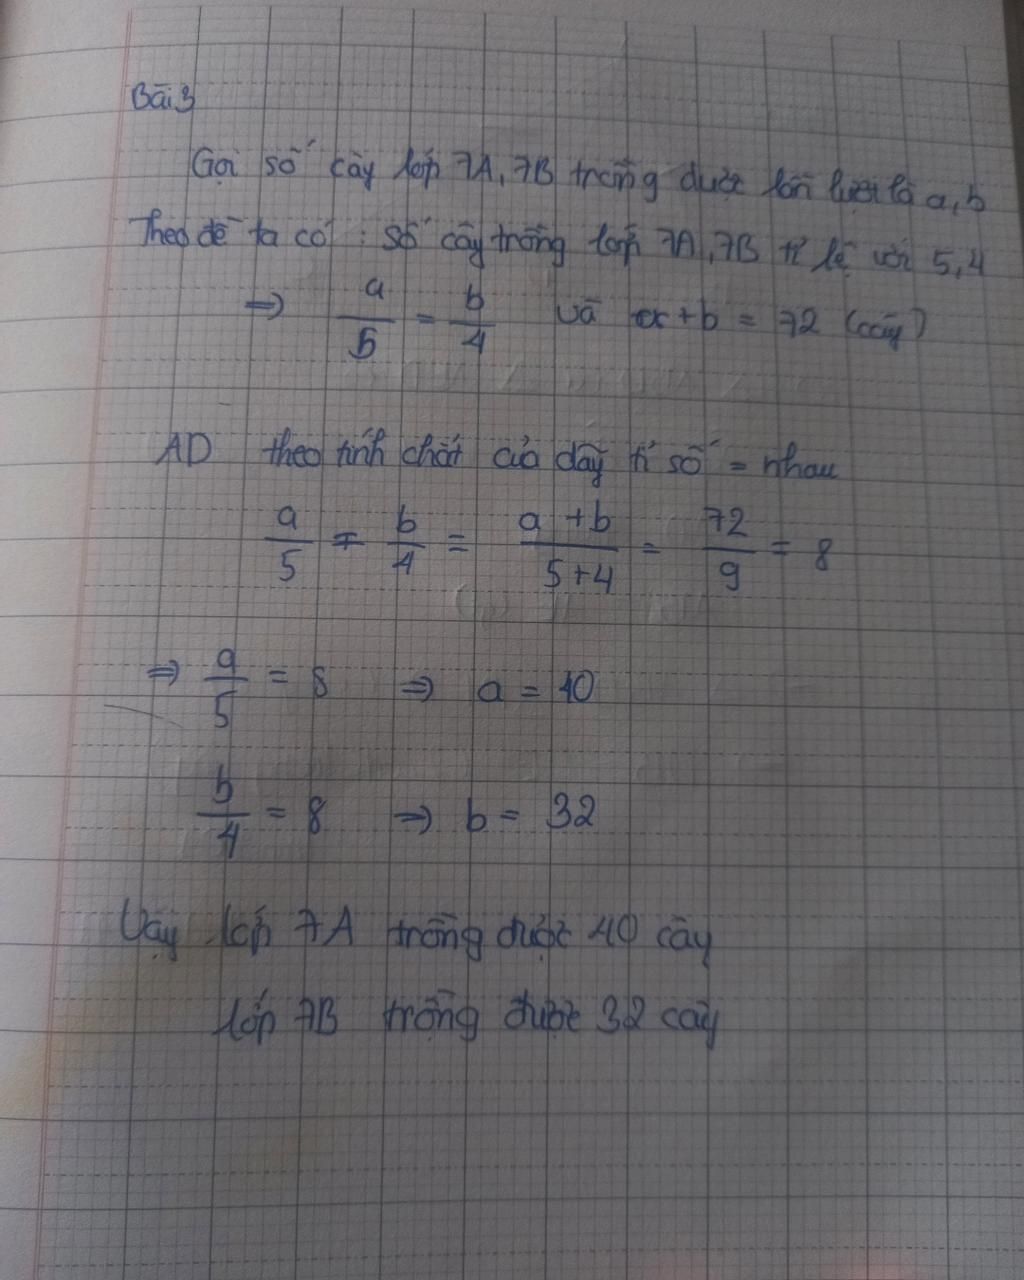 Bài 3
Gọi số cây lớp 7A, 7B trồng được lần lượt là a, b
Theo đề ta có : số cây trồng lớp 7A, 7B tỉ lệ với 5, 4
⇒ a/5 = b/4 và a + b = 72 (cây)
AD theo tính chất của dãy tỉ số = nhau
a/5 = b/4 = (a + b)/(5 + 4) = 72/9 = 8
⇒ a/5 = 8 ⇒ a = 40
b/4 = 8 ⇒ b = 32
Vậy lớp 7A trồng được 40 cây
lớp 7B trồng được 32 cây